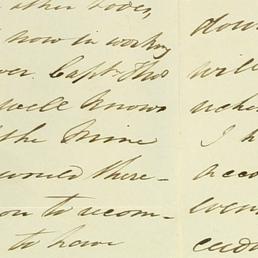 other Lodes,
now in working
over. Capt. Thos
well knows
the Mine
would there-
you to recom-
to have
down
will
I h
acco
even